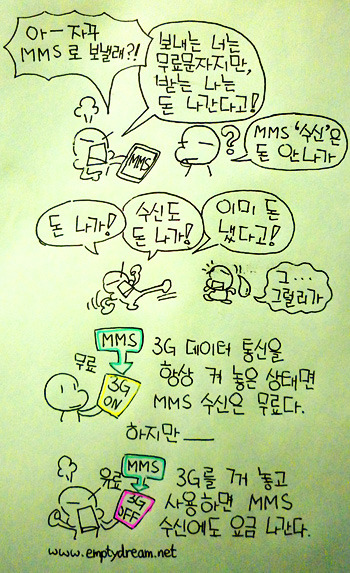 아— 자꾸
MMS로 보낼래?!
보내는 너는
무료문자지만,
받는 나는
돈 나간다고!
MMS
?
MMS '수신'은
돈 안나가
돈 나가!
수신도
돈 나가!
이미 돈
냈다고!
그....
그럴리가
MMS
무료
3G
ON
3G 데이터 통신을
항상 켜 놓은 상태면
MMS 수신은 무료다.
하지만 ——
MMS
유료
3G
OFF
3G를 꺼 놓고
사용하면 MMS
수신에도 요금 나간다.
www.emptydream.net